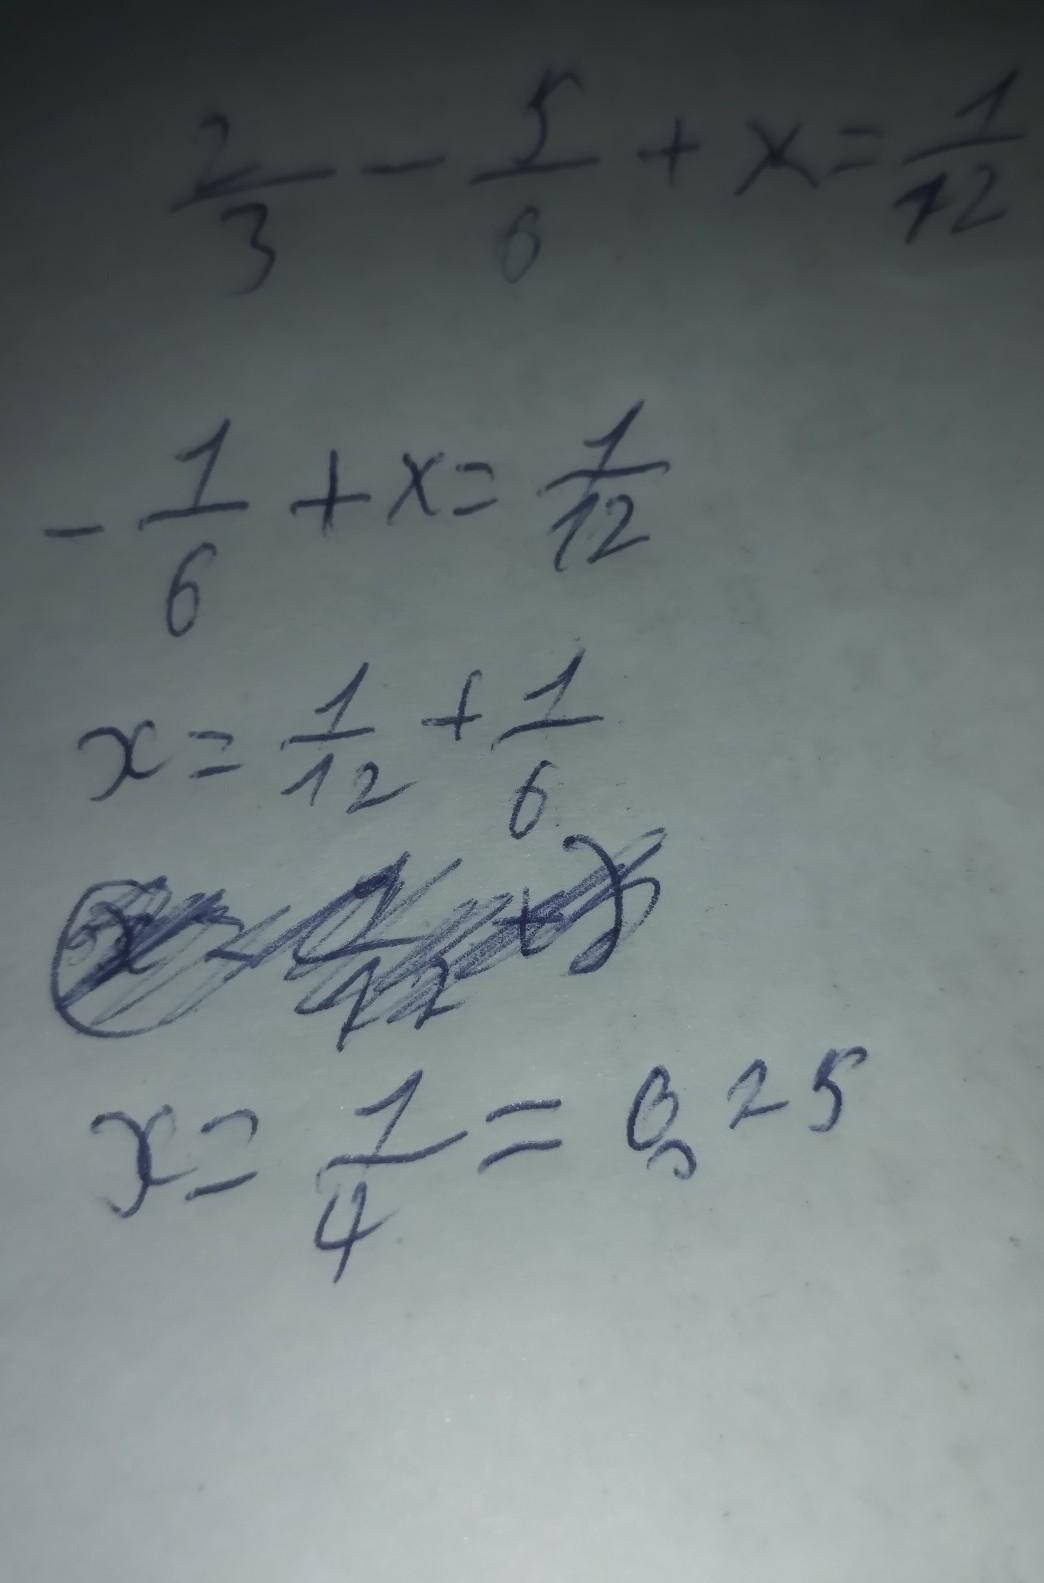 2/3 - 5/6 + x = 1/12
- 1/6 + x = 1/12
x = 1/12 + 1/6
x = 1/4 = 0,25